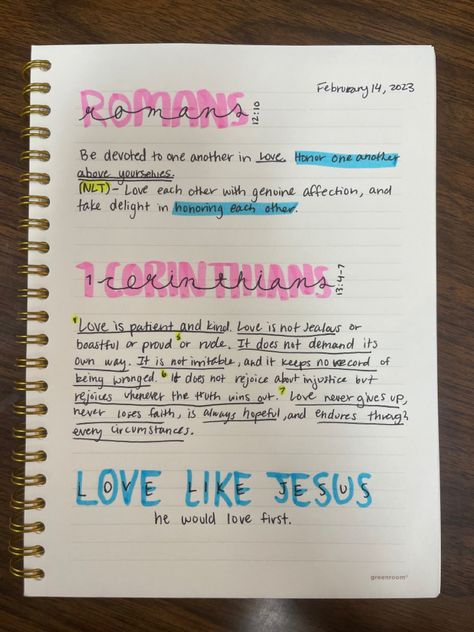 February 14, 2023
ROMANS
romans
12:10
Be devoted to one another in love. Honor one another
above yourselves.
(NLT) - Love each other with genuine affection, and
take delight in honoring each other.
1 CORINTHIANS
1 corinthians
13:4-7
4 Love is patient and kind. Love is not jealous or
boastful or proud 5 or rude. It does not demand its
own way. It is not irritable, and it keeps no record of
being wronged. 6 It does not rejoice about injustice but
rejoices whenever the truth wins out. 7 Love never gives up,
never loses faith, is always hopeful, and endures through
every circumstances.
LOVE LIKE JESUS
LOVE LIKE JESUS
he would love first.
greenroom